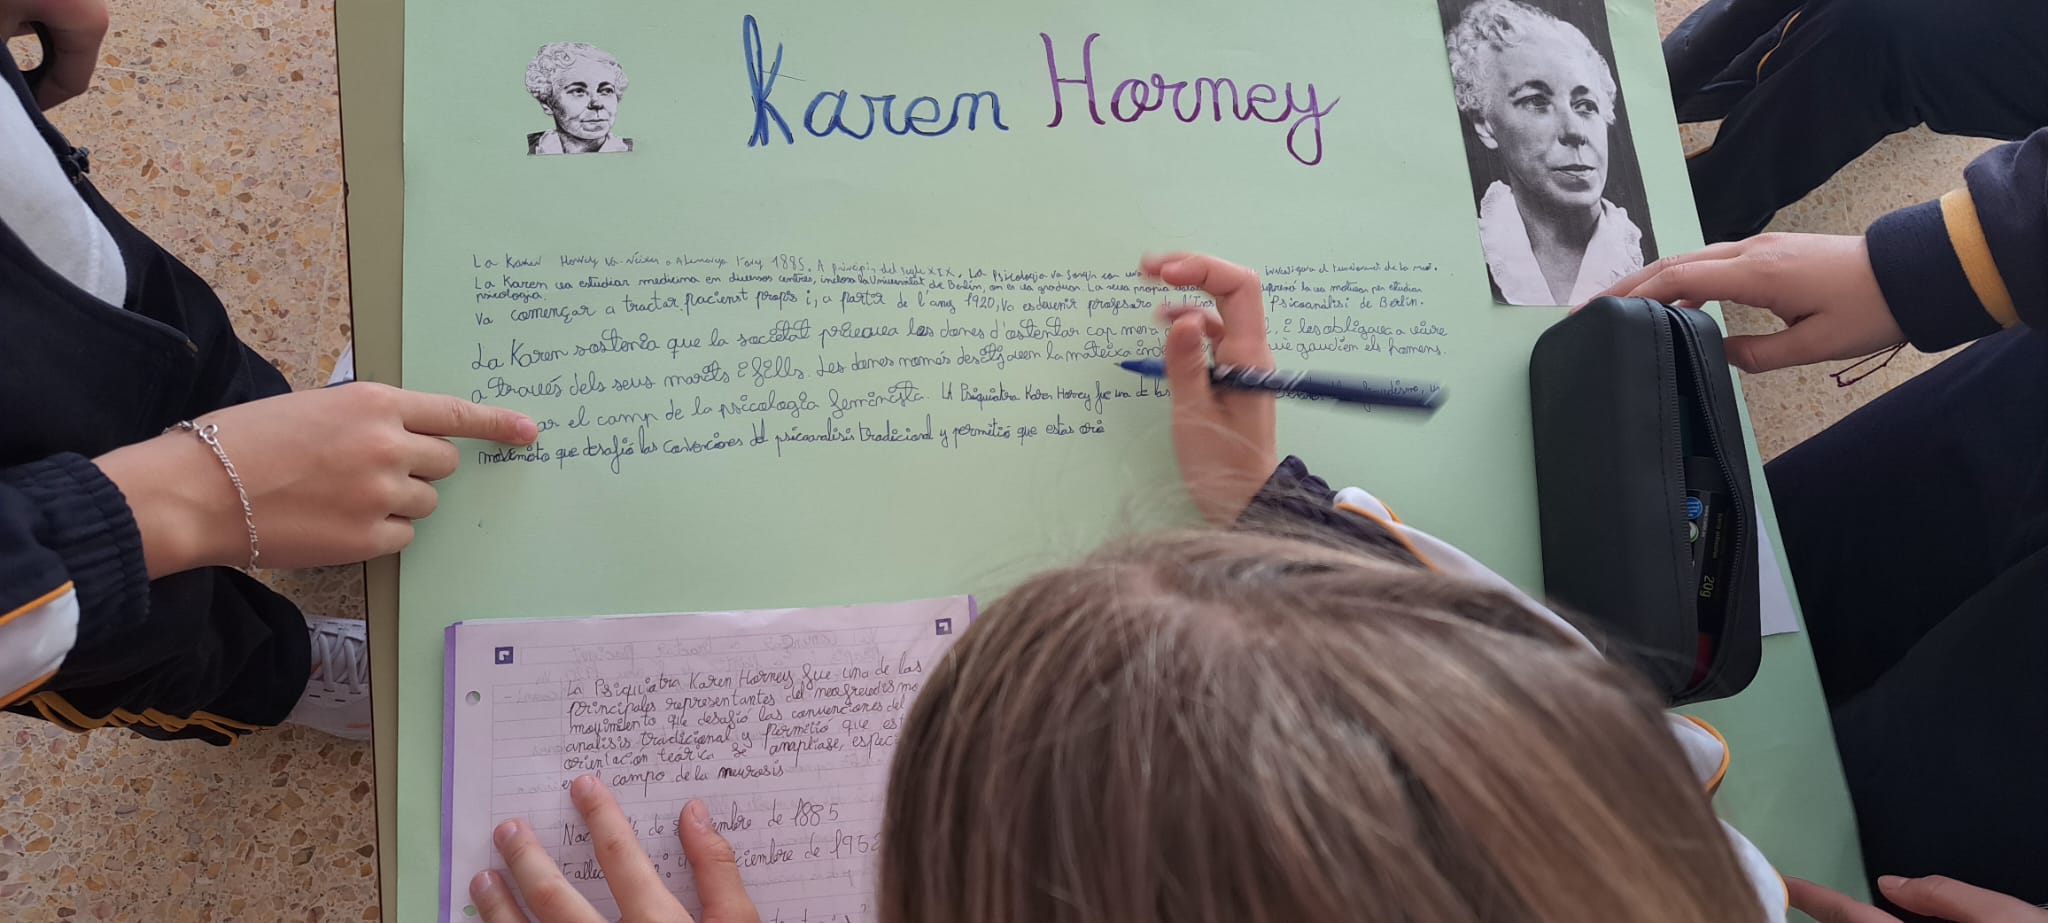 Karen Horney
La Karen Horney va néixer a Alemanya l'any 1885. A principis del segle XIX. La Psicologia va sorgir con una investigava el funcionament de la
La Karen va estudiar medicina em diversos centres, inclosa la Universitat de Berlín, on es va graduar. La seva propia la va motivar per estudiar
psicologia.
Va començar a tractar pacienst propis i, a partir de l'any 1920, va esdevenir professora de l' Psicoanàlisi de Berlín.
La Karen sostenia que la societat privava les dones d'ostentar cap mena d i les obligava a viure
a través dels seus marits i fills. Les dones només desitjaven la mateixa què gaudien els homens.
ar el camp de la psicologia feminista. LA Psiquiatra Karen Horney fue una de las
movimiento que desafió las convenciones del psicoanalisis tradicional y permitió que estas ori
La Psiquiatra Karen Horney fue una de las
principales representantes del neofreudismo
movimiento que desafió las convenciones del
analisis tradicional y permitió que est
orientación teórica se ampliase, espec
campo de la neurosis
de 1885
diciembre de 1952
20g